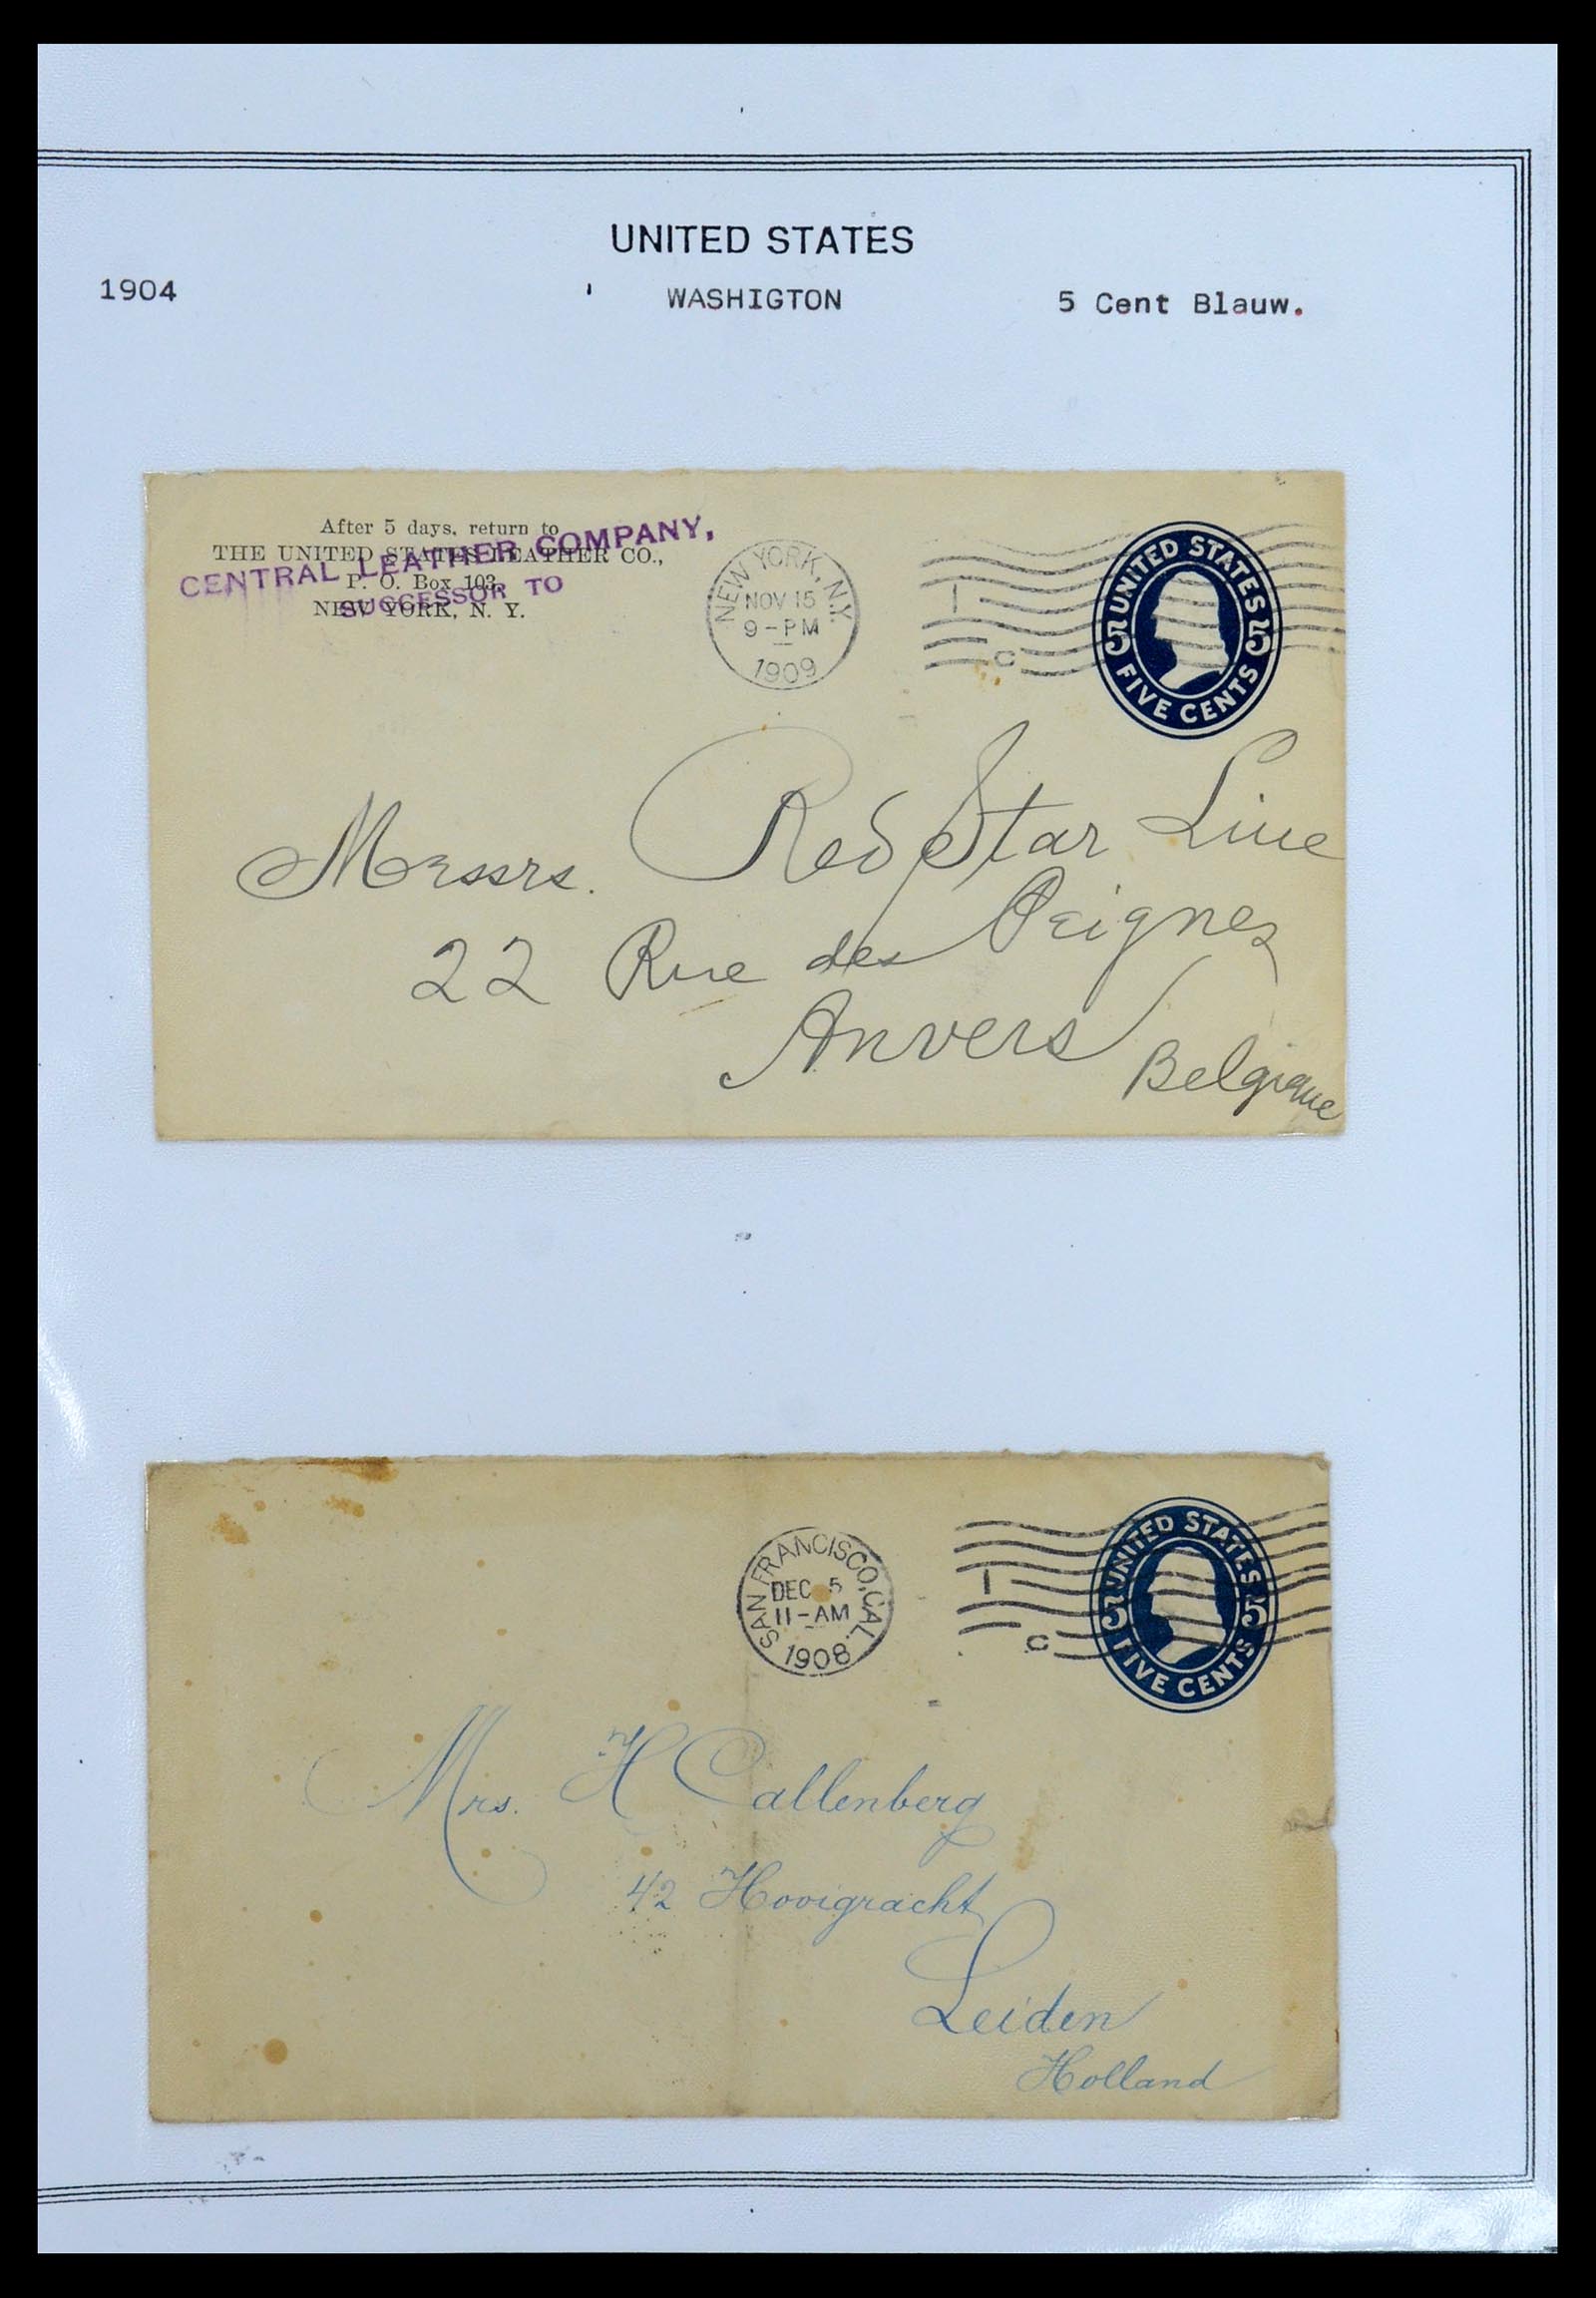 UNITED STATES
1904 WASHIGTON 5 Cent Blauw.
After 5 days, return to
THE UNITED STATES LEATHER CO.,
P. O. Box 103,
NEW YORK, N. Y.
CENTRAL LEATHER COMPANY,
SUCCESSOR TO
NEW YORK, N.Y.
NOV 15
9-PM
1909
1
C
UNITED STATES
5 5
FIVE CENTS
Messrs. Red Star Line
22 Rue des Peignes
Anvers
Belgique
SAN FRANCISCO, CAL.
DEC 5
11-AM
1908
1
C
UNITED STATES
5 5
FIVE CENTS
Mrs. H Callenberg
42 Hooigracht
Leiden
Holland